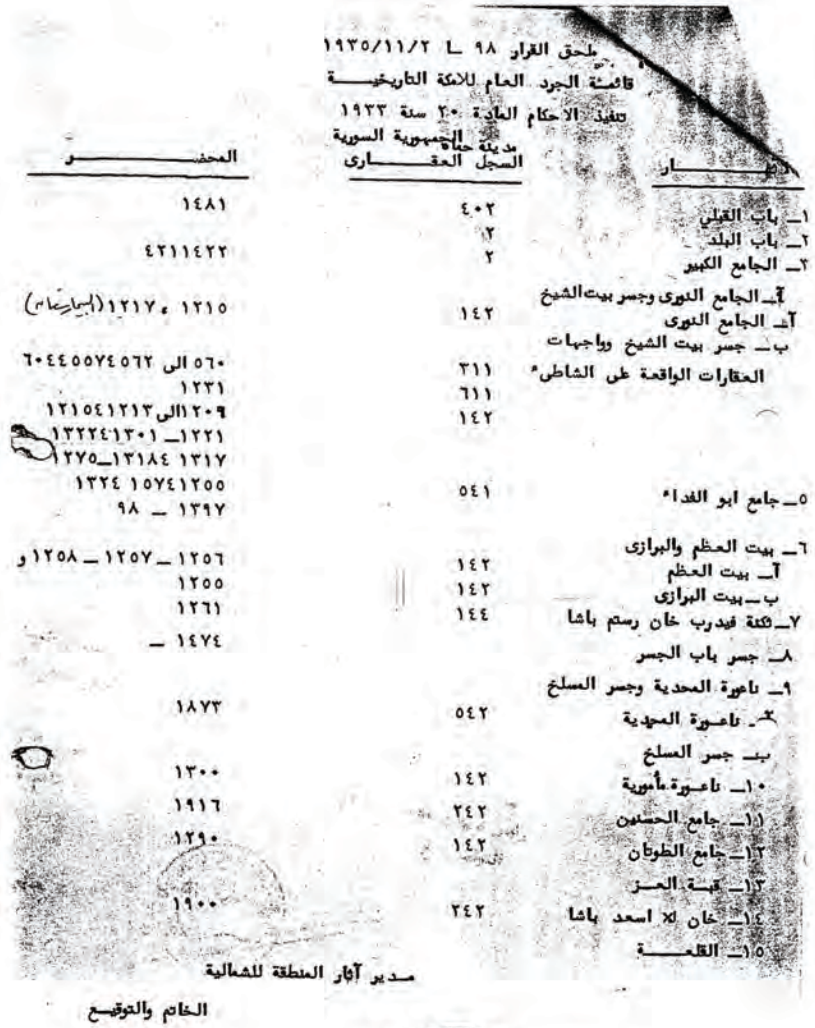 ملحق القرار ٩٨ لـ ١٩٣٥/١١/٢
قائمة الجرد العام للامكة التاريخيـــــة
تنفيذ الاحكام المادة ٢٠ سنة ١٩٣٣
الجمهورية السورية
مدينة حماه
السجل العقــــــارى المحضــــــر
١ــ باب القبلي ٤٠٢ ١٤٨١
٢ــ باب البلد ٢
٣ــ الجامع الكبير ٢ ٤٢١١٤٢٢
آــ الجامع النورى وجسر بيت الشيخ
آــ الجامع النورى ١٤٢ ١٢١٥ ، ١٢١٧ (البيمارستان)
ب ــ جسر بيت الشيخ وواجهات
العقارات الواقعة على الشاطىء ٣١١ ٥٦٠ الى ٥٦٢ ٦٠٤٤٥٥٧٤
٦١١ ١٢٣١
١٤٢ ١٢٠٩الى١٢١٣ ١٢١٥٤
١٢٢١ ــ ١٣٠١ ١٣٢٢٤
١٣١٧ ١٣١٨٤ــ١٢٧٥
٥ــ جامع ابو الفداء ٥٤١ ١٢٥٥ ١٥٧٤ ١٣٢٤
١٣٩٧ ــ ٩٨
٦ــ بيت العظم والبرازى
آــ بيت العظم ١٤٢ ١٢٥٦ ــ ١٢٥٧ ــ ١٢٥٨ و
ب ــ بيت البرازى ١٤٢ ١٢٥٥
٧ــ ثكنة فيدرب خان رستم باشا ١٤٤ ١٢٦١
٨ــ جسر باب الجسر ١٤٧٤ ــ
٩ــ ناعورة المحدية وجسر المسلخ
ناعــورة المحدية ٥٤٢ ١٨٧٣
بــ جسر المسلخ
١٠ــ ناعــورة مأمورية ١٤٢ ١٣٠٠
١١ــ جامع الحسنين ٢٤٢ ١٩١٦
١٢ــ جامع الطوتان ١٤٢ ١٢٩٠
١٣ــ قبــة العــز
١٤ــ خان لا اسعد باشا ٢٤٢ ١٩٠٠
١٥ــ القلعــــــة
مــدير آثار المنطقة للشمالية
الخاتم والتوقيــع